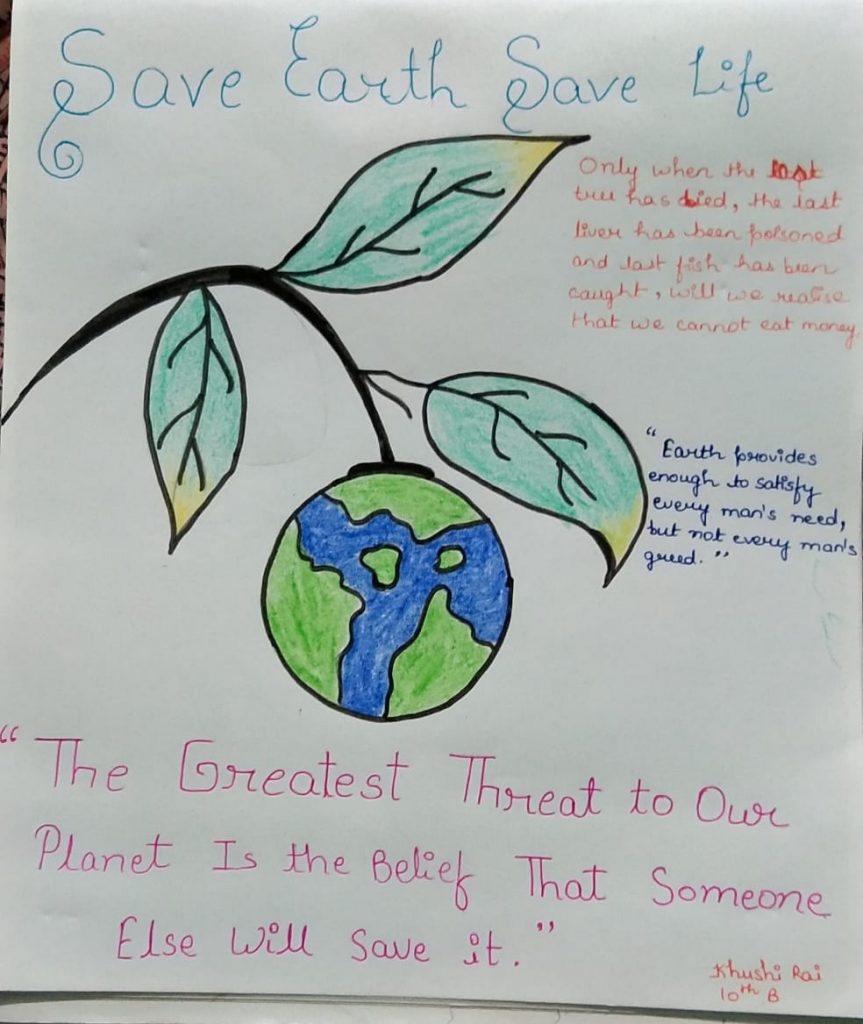 Save Earth Save Life
Only when the last
tree has died, the last
liver has been poisoned
and last fish has been
caught, will we realise
that we cannot eat money.
"Earth provides
enough to satisfy
every man's need,
but not every man's
greed."
"The Greatest Threat to Our
Planet Is the Belief That Someone
Else Will Save it."
Khushi Rai
10th B